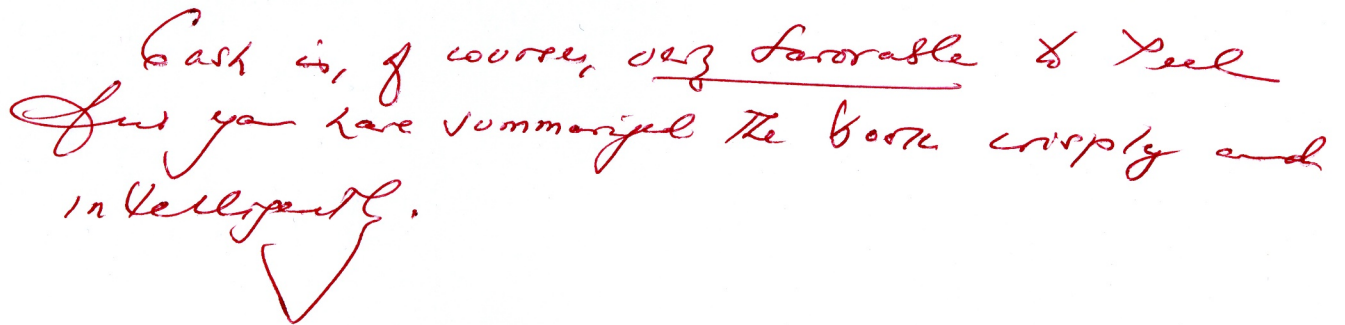 Gash is, of course, very favorable to Peel
but you have summarized the book crisply and
intelligently.